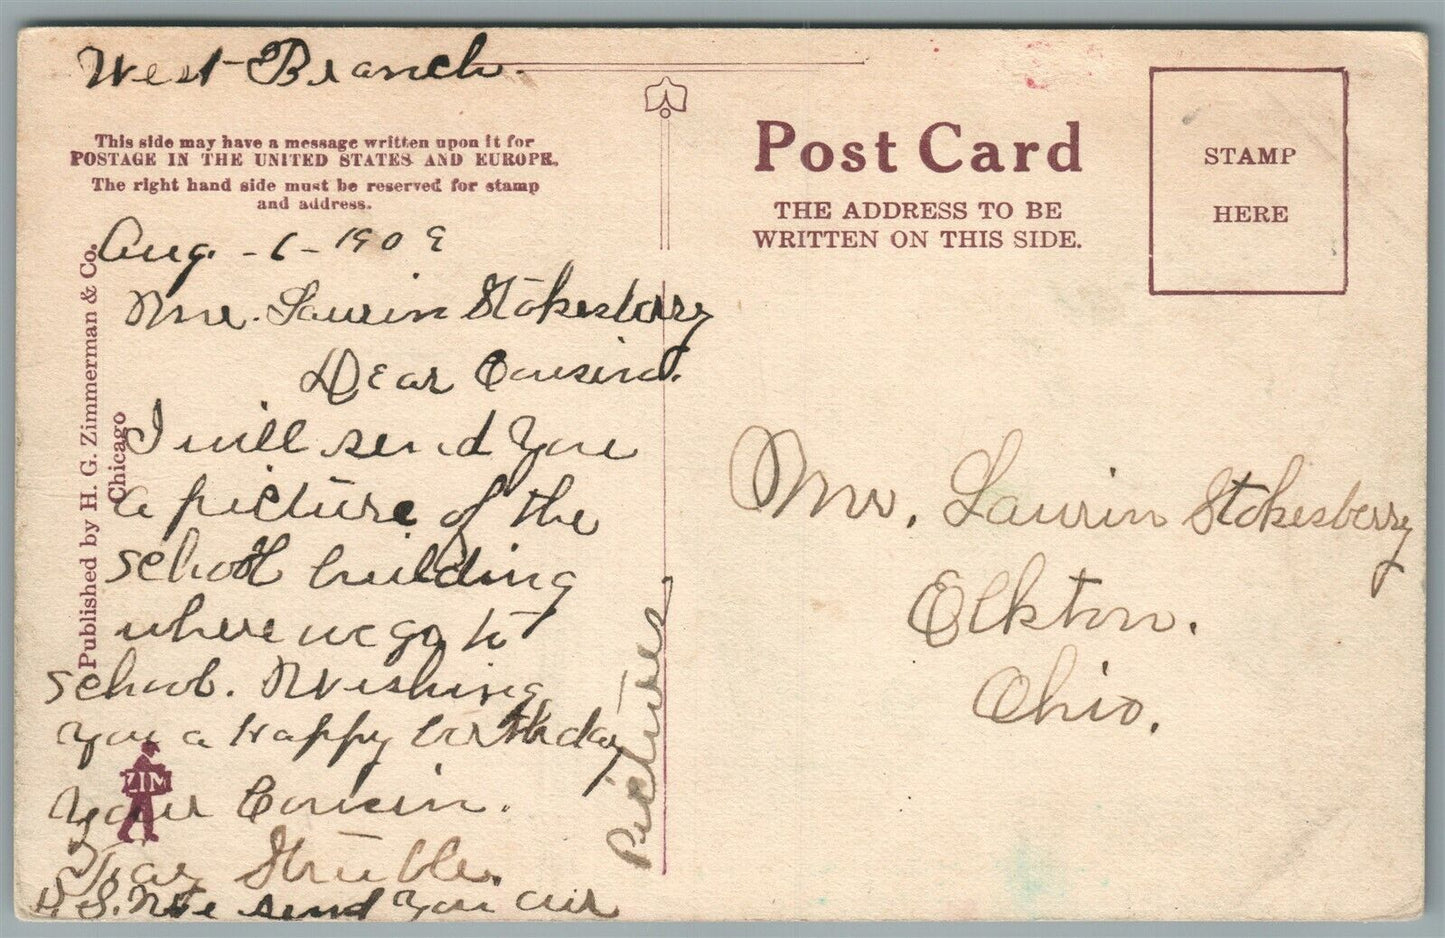 West Branch.
This side may have a message written upon it for
POSTAGE IN THE UNITED STATES AND EUROPE.
The right hand side must be reserved for stamp
and address.
Aug. - 6 - 1909
Mr. Laurin Stokesberry
Dear Cousin.
I will send you
a picture of the
school building
where we go to
school. Wishing
you a Happy birthday
Your Cousin.
Struble.
P.S. We send you our
Pictures
Published by H. G. Zimmerman & Co.
Chicago
ZIM
Post Card
THE ADDRESS TO BE
WRITTEN ON THIS SIDE.
STAMP
HERE
Mr. Laurin Stokesberry
Elkton.
Ohio.